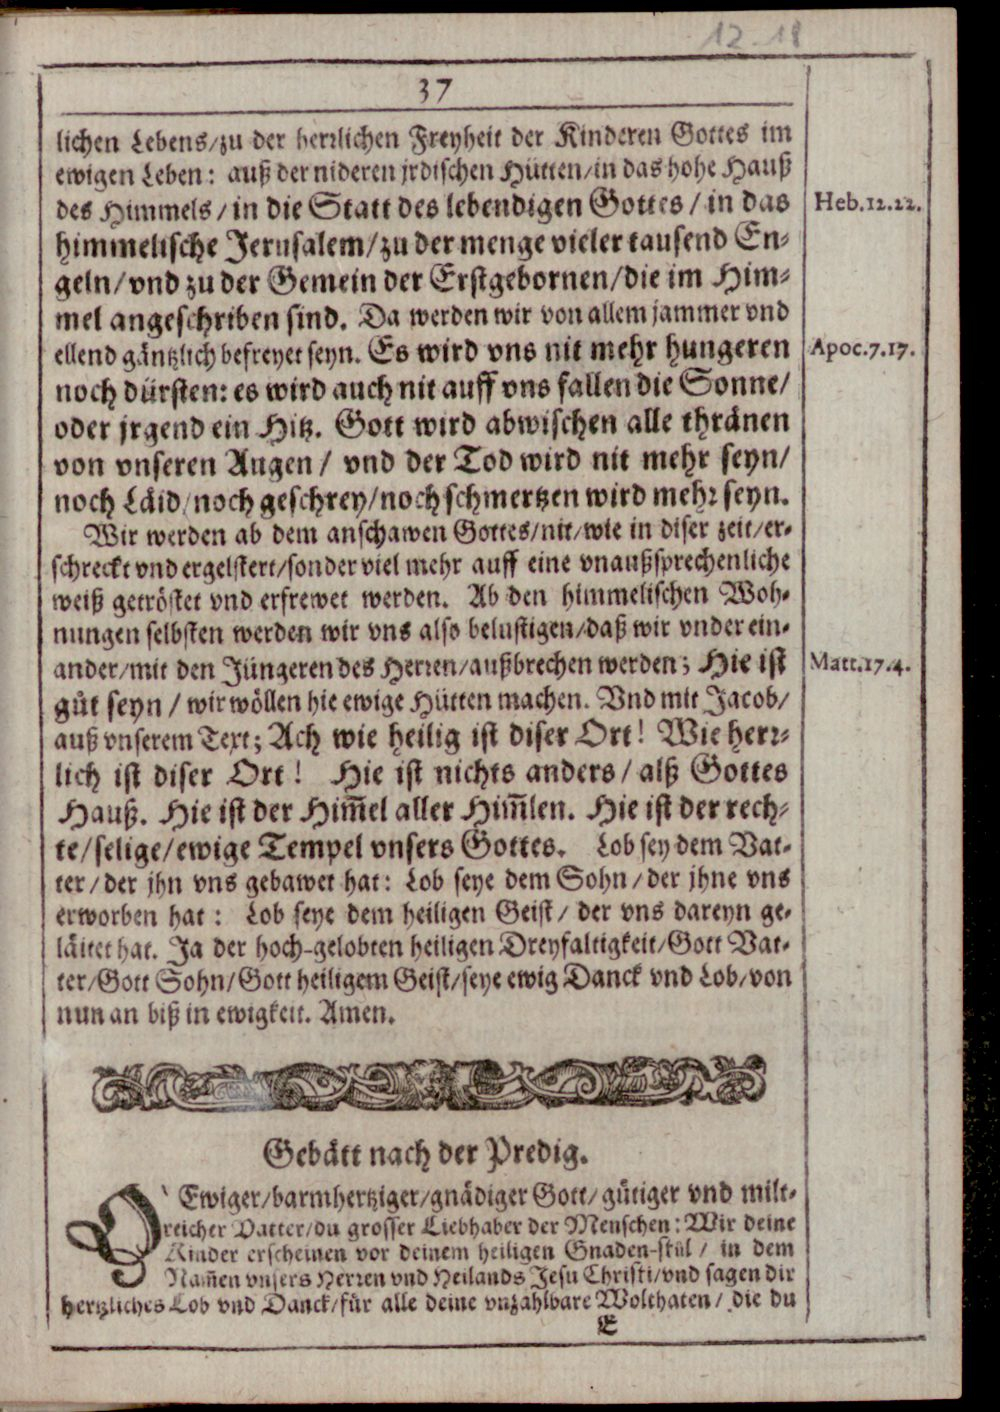 12-18
37
lichen Lebens/zu der herrlichen Freyheit der Kinderen Gottes im
ewigen Leben: auß der nideren jrdischen Hütten/in das hohe Hauß
des Himmels/in die Statt des lebendigen Gottes/in das
Heb.12.22.
himmelische Jerusalem/zu der menge vieler tausend En-
geln/vnd zu der Gemein der Erstgebornen/die im Him-
mel angeschriben sind. Da werden wir von allem jammer vnd
ellend gäntzlich befreyet seyn. Es wird vns nit mehr hungeren
Apoc.7.17.
noch dürsten: es wird auch nit auff vns fallen die Sonne/
oder jrgend ein Hitz. Gott wird abwischen alle thränen
von vnseren Augen/ vnd der Tod wird nit mehr seyn/
noch Läid/noch geschrey/noch schmertzen wird mehr seyn.
Wir werden ab dem anschawen Gottes/nit/wie in diser zeit/er-
schreckt vnd ergelstert/sonder viel mehr auff eine vnaußsprechenliche
weiß getröstet vnd erfrewet werden. Ab den himmelischen Woh-
nungen selbsten werden wir vns also belustigen/daß wir vnder ein-
ander/mit den Jüngeren des Herren/außbrechen werden; Hie ist
Matt.17.4.
gůt seyn/wir wöllen hie ewige Hütten machen. Vnd mit Jacob/
auß vnserem Text; Ach wie heilig ist diser Ort! Wie herr-
lich ist diser Ort! Hie ist nichts anders/alß Gottes
Hauß. Hie ist der Him̃el aller Him̃len. Hie ist der rech-
te/selige/ewige Tempel vnsers Gottes. Lob sey dem Vat-
ter/der jhn vns gebawet hat: Lob seye dem Sohn/der jhne vns
erworben hat: Lob seye dem heiligen Geist/ der vns dareyn ge-
läitet hat. Ja der hoch-gelobten heiligen Dreyfaltigkeit/Gott Vat-
ter/Gott Sohn/Gott heiligem Geist/seye ewig Danck vnd Lob/von
nun an biß in ewigkeit. Amen.
Gebätt nach der Predig.
O Ewiger/barmhertziger/gnädiger Gott/gütiger vnd milt-
reicher Vatter/du grosser Liebhaber der Menschen: Wir deine
Kinder erscheinen vor deinem heiligen Gnaden-stůl/ in dem
Nam̃en vnsers Herren vnd Heilands Jesu Christi/vnd sagen dir
hertzliches Lob vnd Danck/für alle deine vnzahlbare Wolthaten/ die du
E